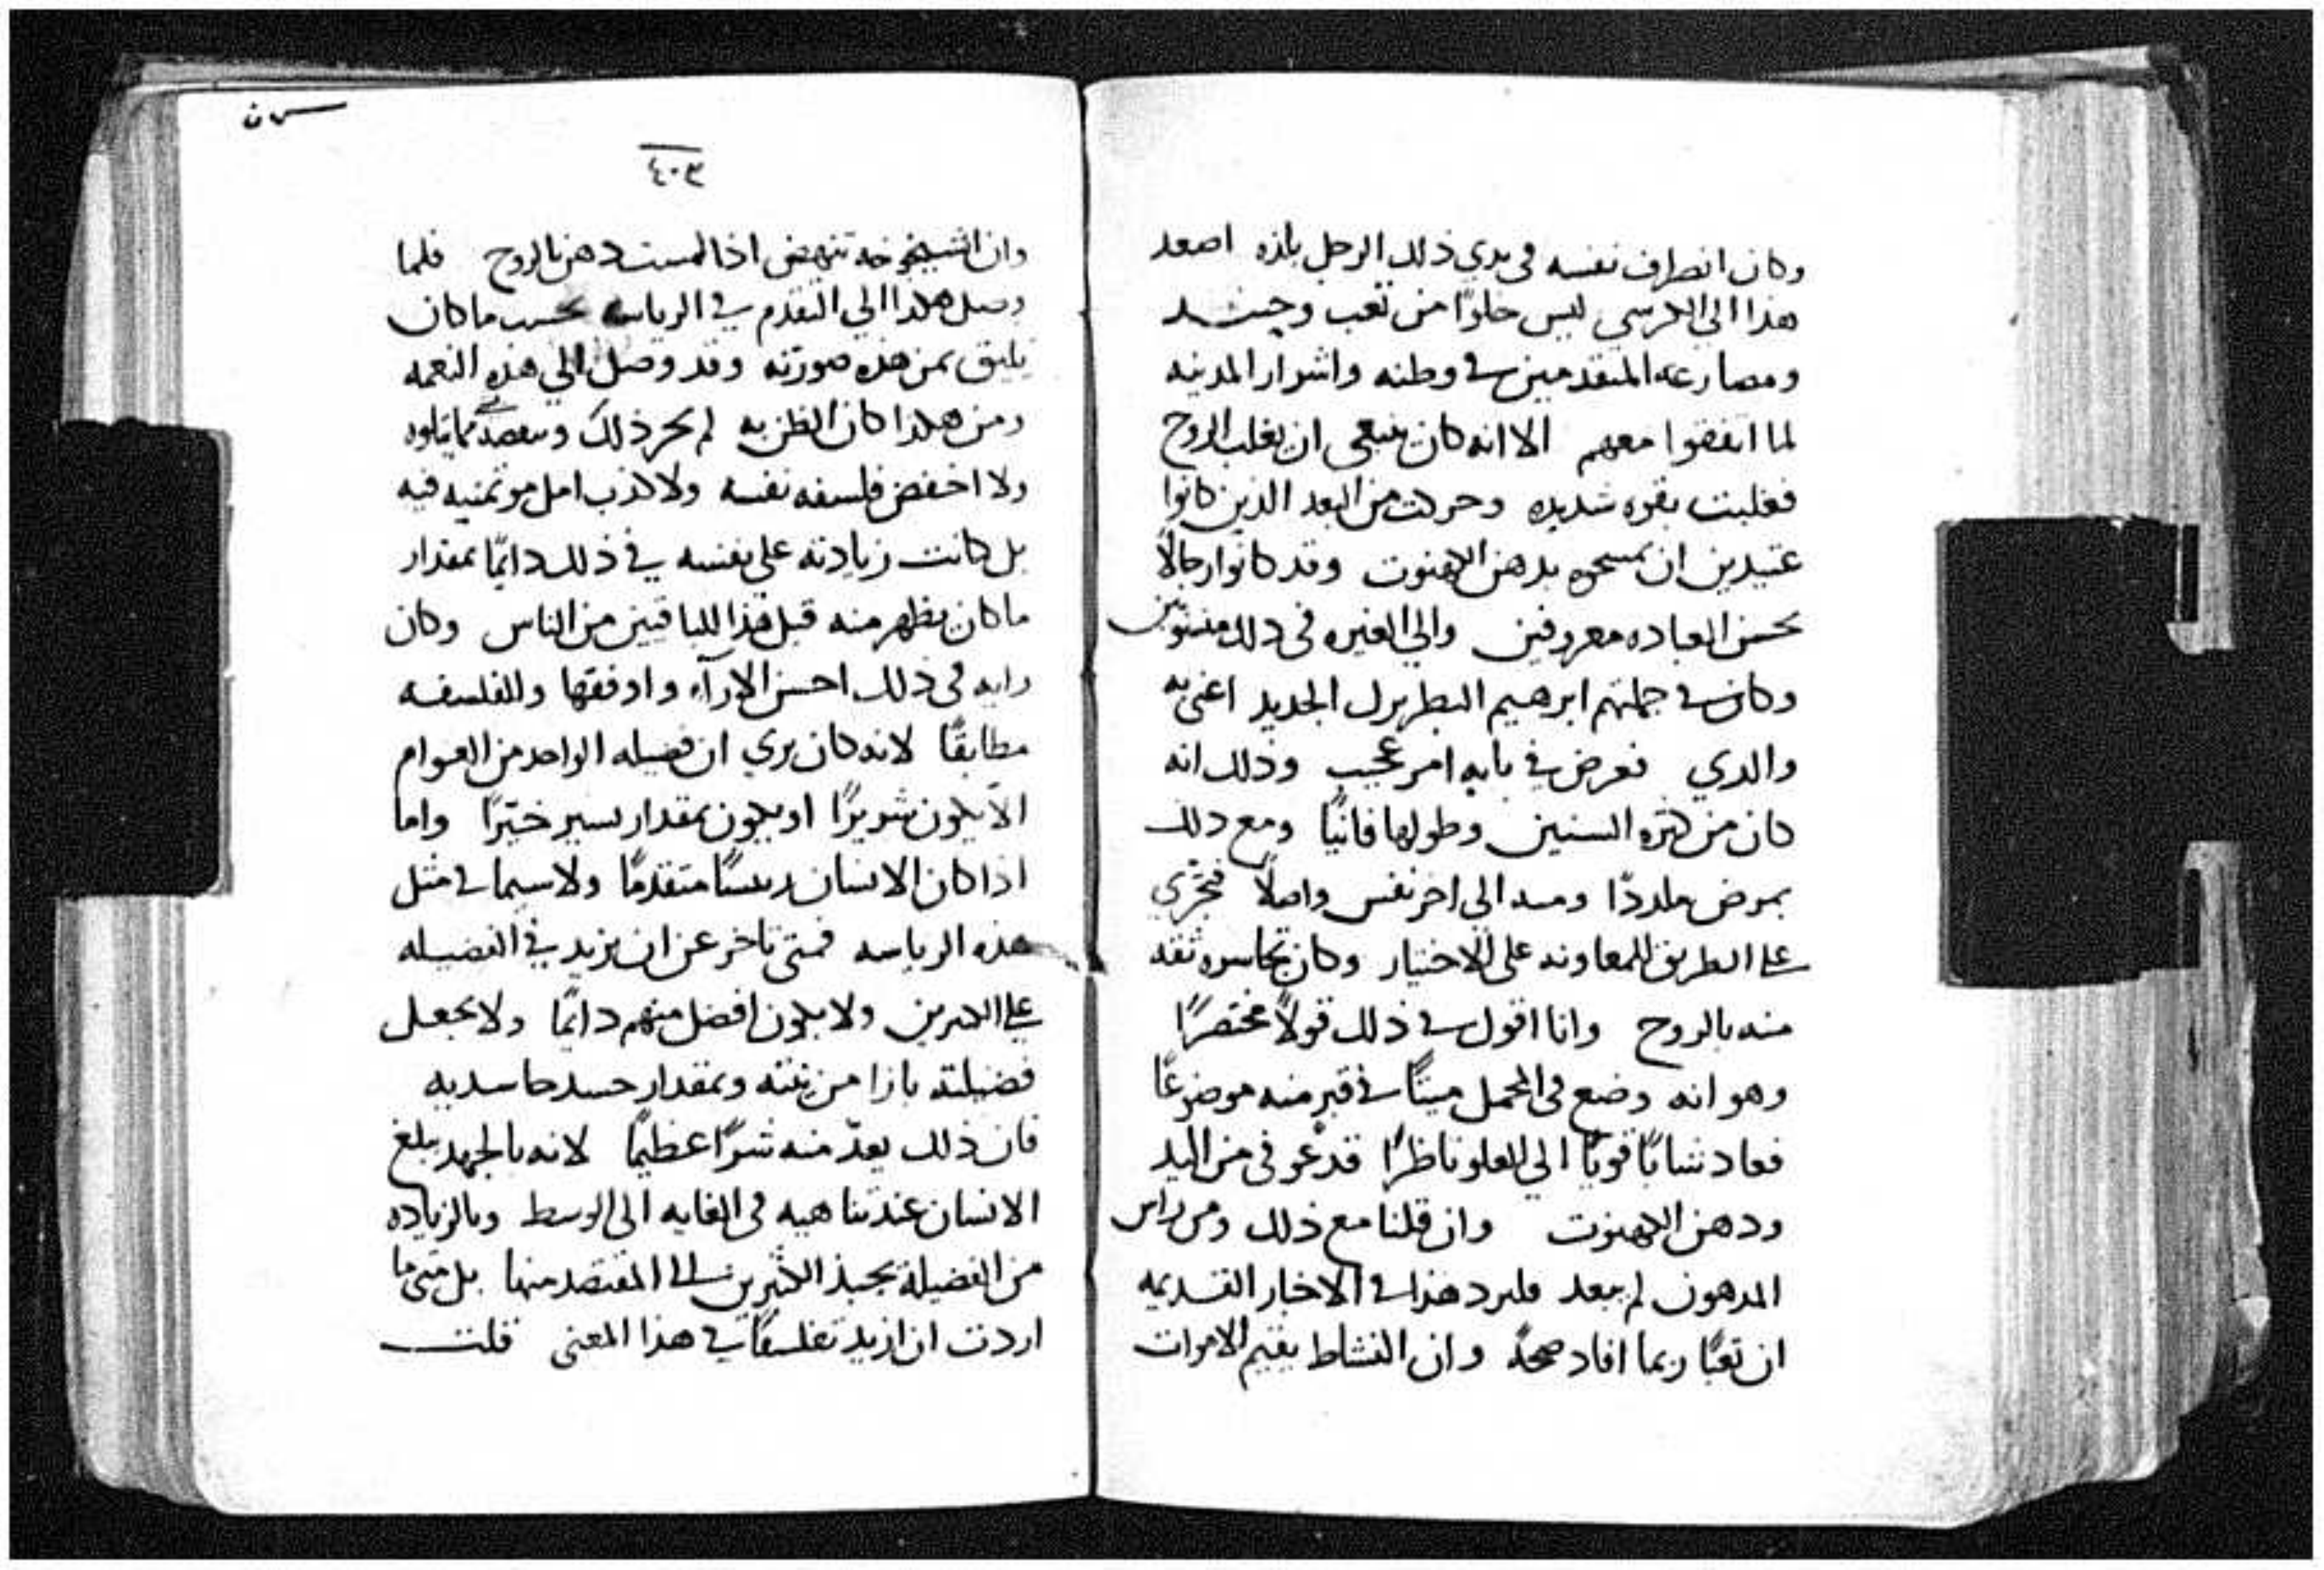 وكان انطراف نفسه في يدي ذلك الرجل بلذه اصعد
هذا الى الكرسي ليس خلوًا من تعب وحسد
ومصارعه المتقدمين في وطنه واشرار المدينه
لما اتفقوا معهم الا انه كان ينبغي ان يغلب الروح
فغلبت بقوه شديده وحركت من البعد الذين كانوا
عتيدين ان يمسحوه بدهن الكهنوت وقد كانوا رجالًا
بحسن العباده معروفين والي الغيره في ذلك
وكان في جملتهم ابرهيم البطريرك الجديد اعني به
والدي فعرض في بابه امر عجيب وذلك انه
كان من كثره السنين وطولها فانيًا ومع ذلك
بمرض مكدودًا ومنه الي اخر نفس واصلًا فتجرّي
على الطريق للمعاونه على الاختيار وكان تجاسره ثقه
منه بالروح وانا اقول في ذلك قولًا مختصرًا
وهو انه وضع في المحمل ميتًا في قبر منه موضوعًا
فعاد شابًا قويًا الي العلو ناظرًا قد عوفي من اليد
ودهن الكهنوت وان قلنا مع ذلك ومن راس
المدهون لم يبعد فليرد هذا في الاخبار القديمه
ان تعبًا ربما افاد صحةً وان النشاط يقيم الاموات
٤٠٣
وان الشيخوخه تنهض اذا لمست دهن بالروح فلما
وصل هكذا الي التقدم في الرياسه بحسب ما كان
يليق بمن هذه صورته وقد وصل الي هذه النعمه
ومن هكذا كان الظن به لم يحر ذلك
ولا اخفض فلسفه نفسه ولا كذب امل موتمنيه فيه
بل كانت زيادته على نفسه في ذلك دايمًا بمقدار
ما كان يظهر منه قبل هذا للباقين من الناس وكان
رايه في ذلك احسن الاراء واوفقها وللفلسفه
مطابقًا لانه كان يري ان فضيله الواحد من العوام
الا يكون شريرًا او يكون بمقدار يسير خيّرًا واما
اذا كان الانسان رييسًا متقدمًا ولا سيما في مثل
هذه الرياسه فمتى تاخر عن ان يزيد في الفضيله
على الكثيرين ولا يكون افضل منهم دايمًا ولا يجعل
فضيلته بازا مرتبته وبمقدار حسد حاسديه
فان ذلك يعدّ منه شرًا عظيمًا لانه بالجهد يبلغ
الانسان عند تناهيه في الغايه الى الوسط وبالزياده
من الفضيلة يجبذ الكثيرين الى المقتصد منها بل متى ما
اردت ان ازيد تفلسفًا في هذا المعنى قلت